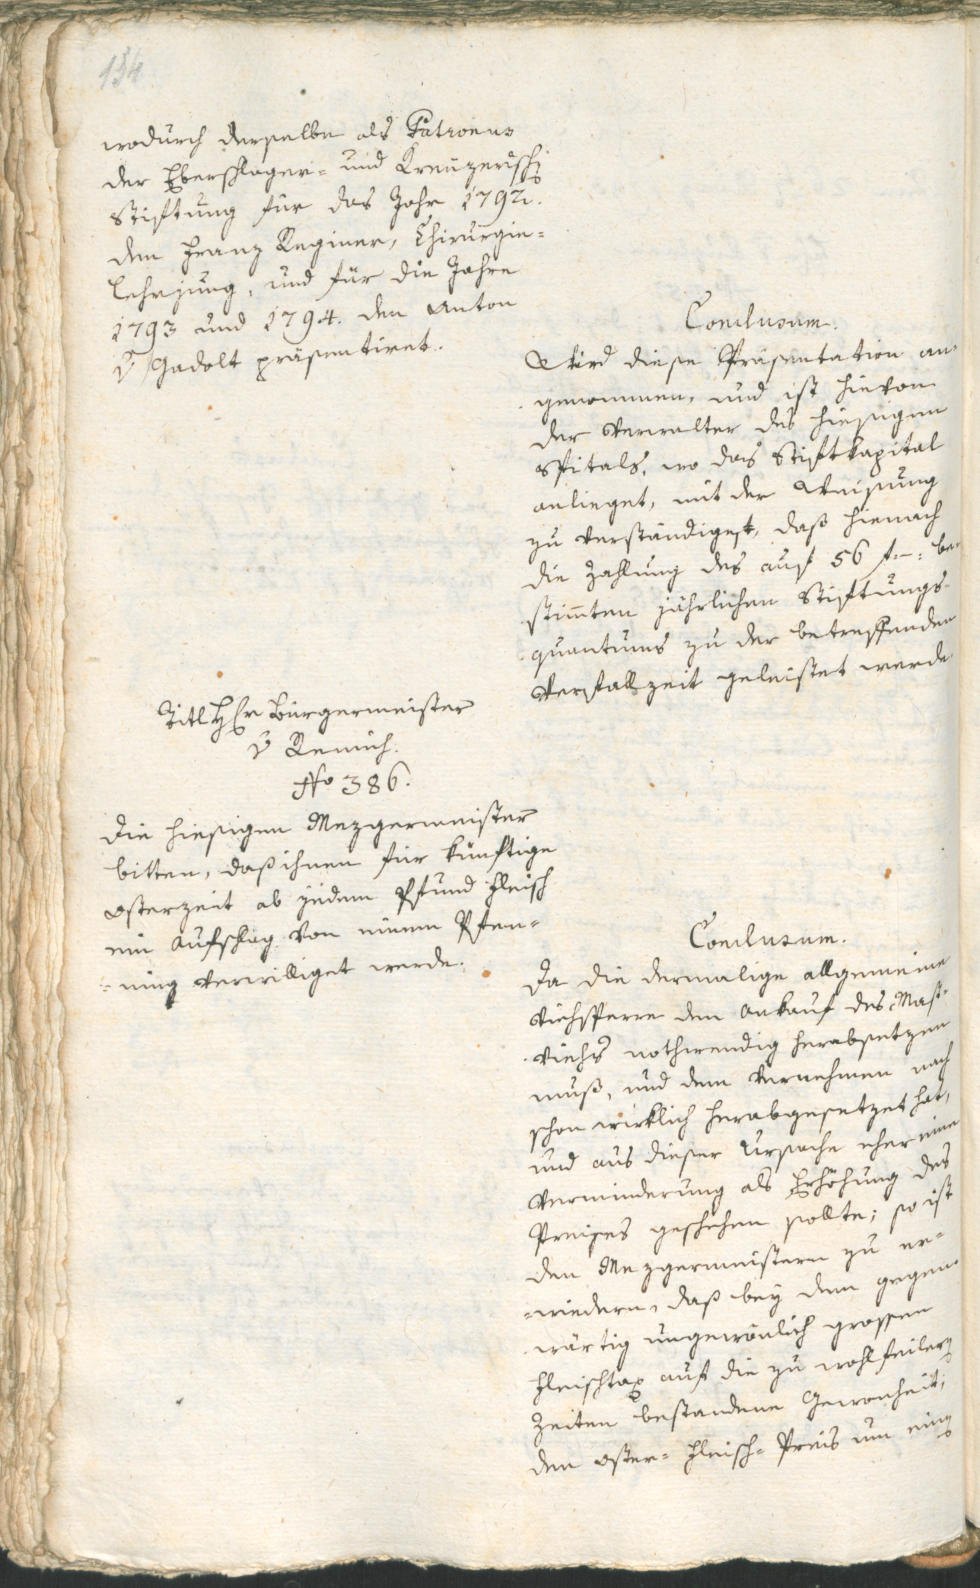 134
wodurch derselbe als Patronus
der Eberschlager- und Kreuzerisch
Stiftung für das Jahr 1792.
den Franz Reginer, Chirurgie-
lehrjung, und für die Jahre
1793 und 1794. den Anton
v Gadolt präsentiret.
Conclusum.
Wird diese Präsentation an-
genommen, und ist hievon
der Verwalter des hiesigen
Spitals, wo das Stiftkapital
anlieget, mit der Weisung
zu verständigen, daß hienach
die Zahlung des auf 56 f — be-
stimten jährlichen Stiftungs-
quantums zu der betreffenden
Verfallzeit geleistet werde
Titl Hr Bürgermeister
v Remich.
No 386.
Die hiesigen Mezgermeister
bitten, daß ihnen für künftige
Osterzeit ab jedem Pfund Fleisch
ein Aufschlag von einem Pfen-
-ning verwilliget werde.
Conclusum.
Da die dermalige allgemeine
Viehsperre den Ankauf des Mast-
viehs nothwendig herabsetzen
muß, und dem Vernehmen nach
schon wirklich herabgesetzet hat,
und aus dieser Ursache eher eine
Verminderung als Erhöhung des
Preises geschehen sollte; so ist
den Mezgermeistern zu er-
-wiedern, daß bey dem gegen-
wärtig ungewönlich grossen
Fleischtax auf die zu wohlfeilern
Zeiten bestandene Gewonheit,
den Oster- Fleisch- Preis um eing